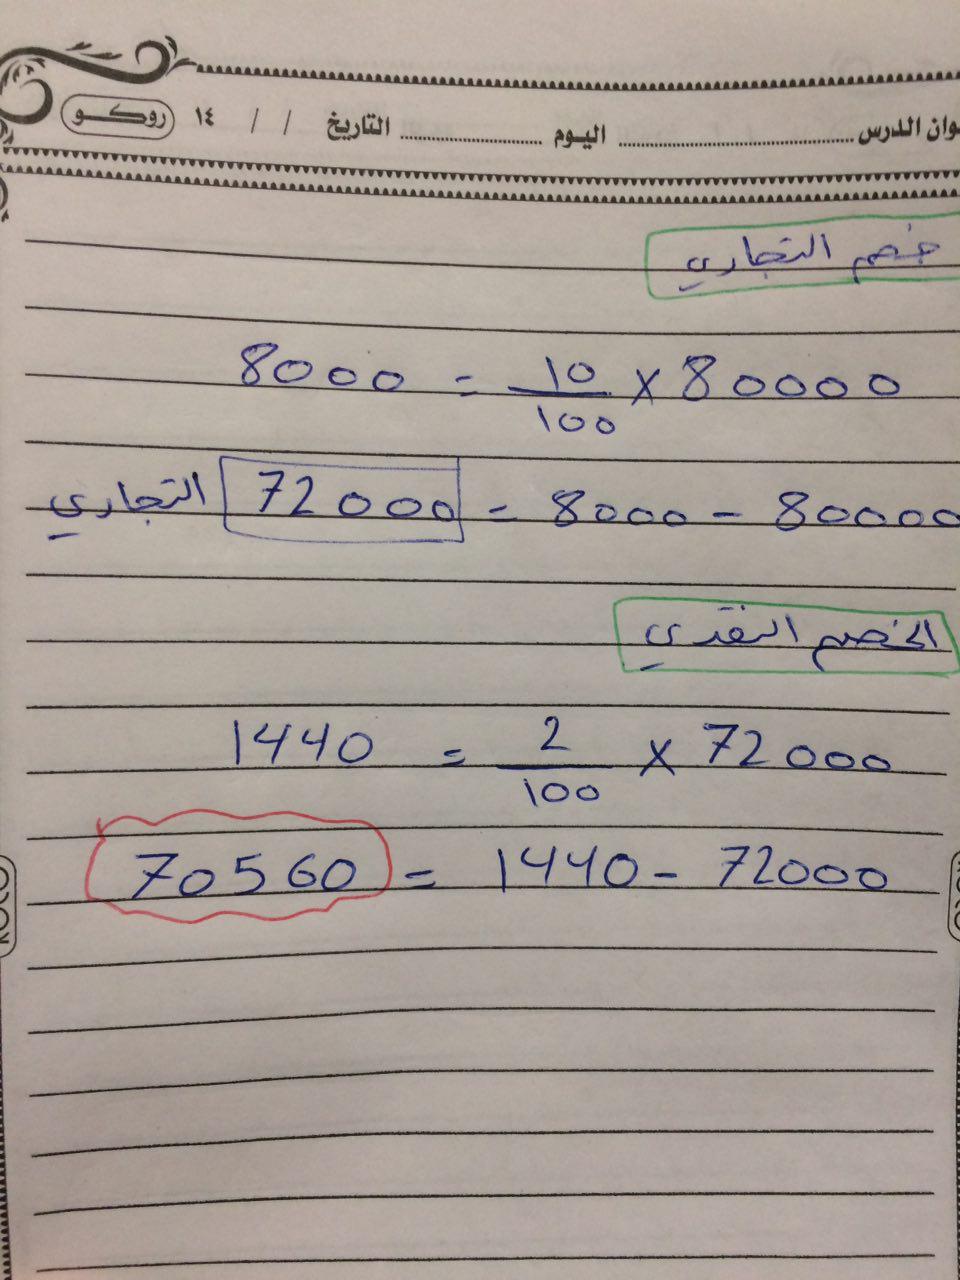 وان الدرس ........ اليوم ........ التاريخ / / ١٤ روكو
خصم التجاري
80000 × 10/100 = 8000
80000 - 8000 = 72000 التجاري
الخصم النقدي
72000 × 2/100 = 1440
72000 - 1440 = 70560
ROCO